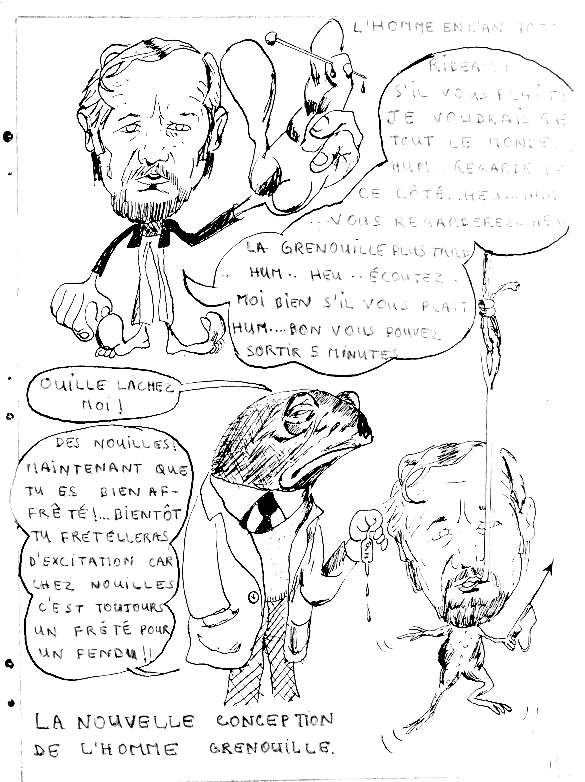 L'HOMME EN L'AN
RIDEA
S'IL VOUS PLAIT!
JE VOUDRAIS QUE
TOUT LE MONDE..
HUM.. REGARDE
CE CÔTÉ..HEU..
..VOUS REGARDEREZ..HEU
LA GRENOUILLE PLUS TARD
.. HUM.. HEU.. ÉCOUTEZ.
MOI BIEN S'IL VOUS PLAIT
HUM....BON VOUS POUVEZ
SORTIR 5 MINUTES
OUILLE LACHEZ
MOI!
DES NOUILLES!
MAINTENANT QUE
TU ES BIEN AF-
FRÊTÉ!...BIENTÔT
TU FRÉTELLERAS
D'EXCITATION CAR
CHEZ NOUILLES
C'EST TOUTOURS
UN FRÉTÉ POUR
UN FENDU!!
LA NOUVELLE CONCEPTION
DE L'HOMME GRENOUILLE.